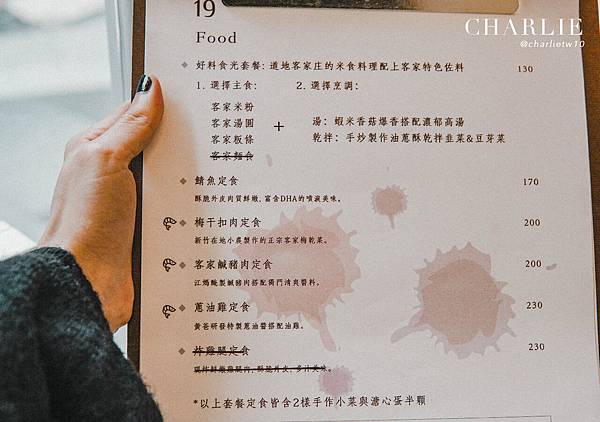 19
CHARLIE
@charlietw10
Food
好料食光套餐: 道地客家庄的米食料理配上客家特色佐料 130
1. 選擇主食: 2. 選擇烹調:
客家米粉
客家湯圓
客家粄條
客家麵食
+
湯: 蝦米香菇爆香搭配濃郁高湯
乾拌: 手炒製作油蔥酥乾拌韭菜&豆芽菜
鯖魚定食 170
酥脆外皮肉質鮮嫩, 富含DHA的噴液美味。
梅干扣肉定食 200
新竹在地小農製作的正宗客家梅乾菜。
客家鹹豬肉定食 200
江媽醃製鹹豬肉搭配獨門清爽醬料。
蔥油雞定食 230
黃爸研發特製蔥油醬搭配油雞。
炸雞腿定食 230
現炸鮮嫩雞腿肉, 酥脆外皮, 多汁美味。
*以上套餐定食皆含2樣手作小菜與溏心蛋半顆